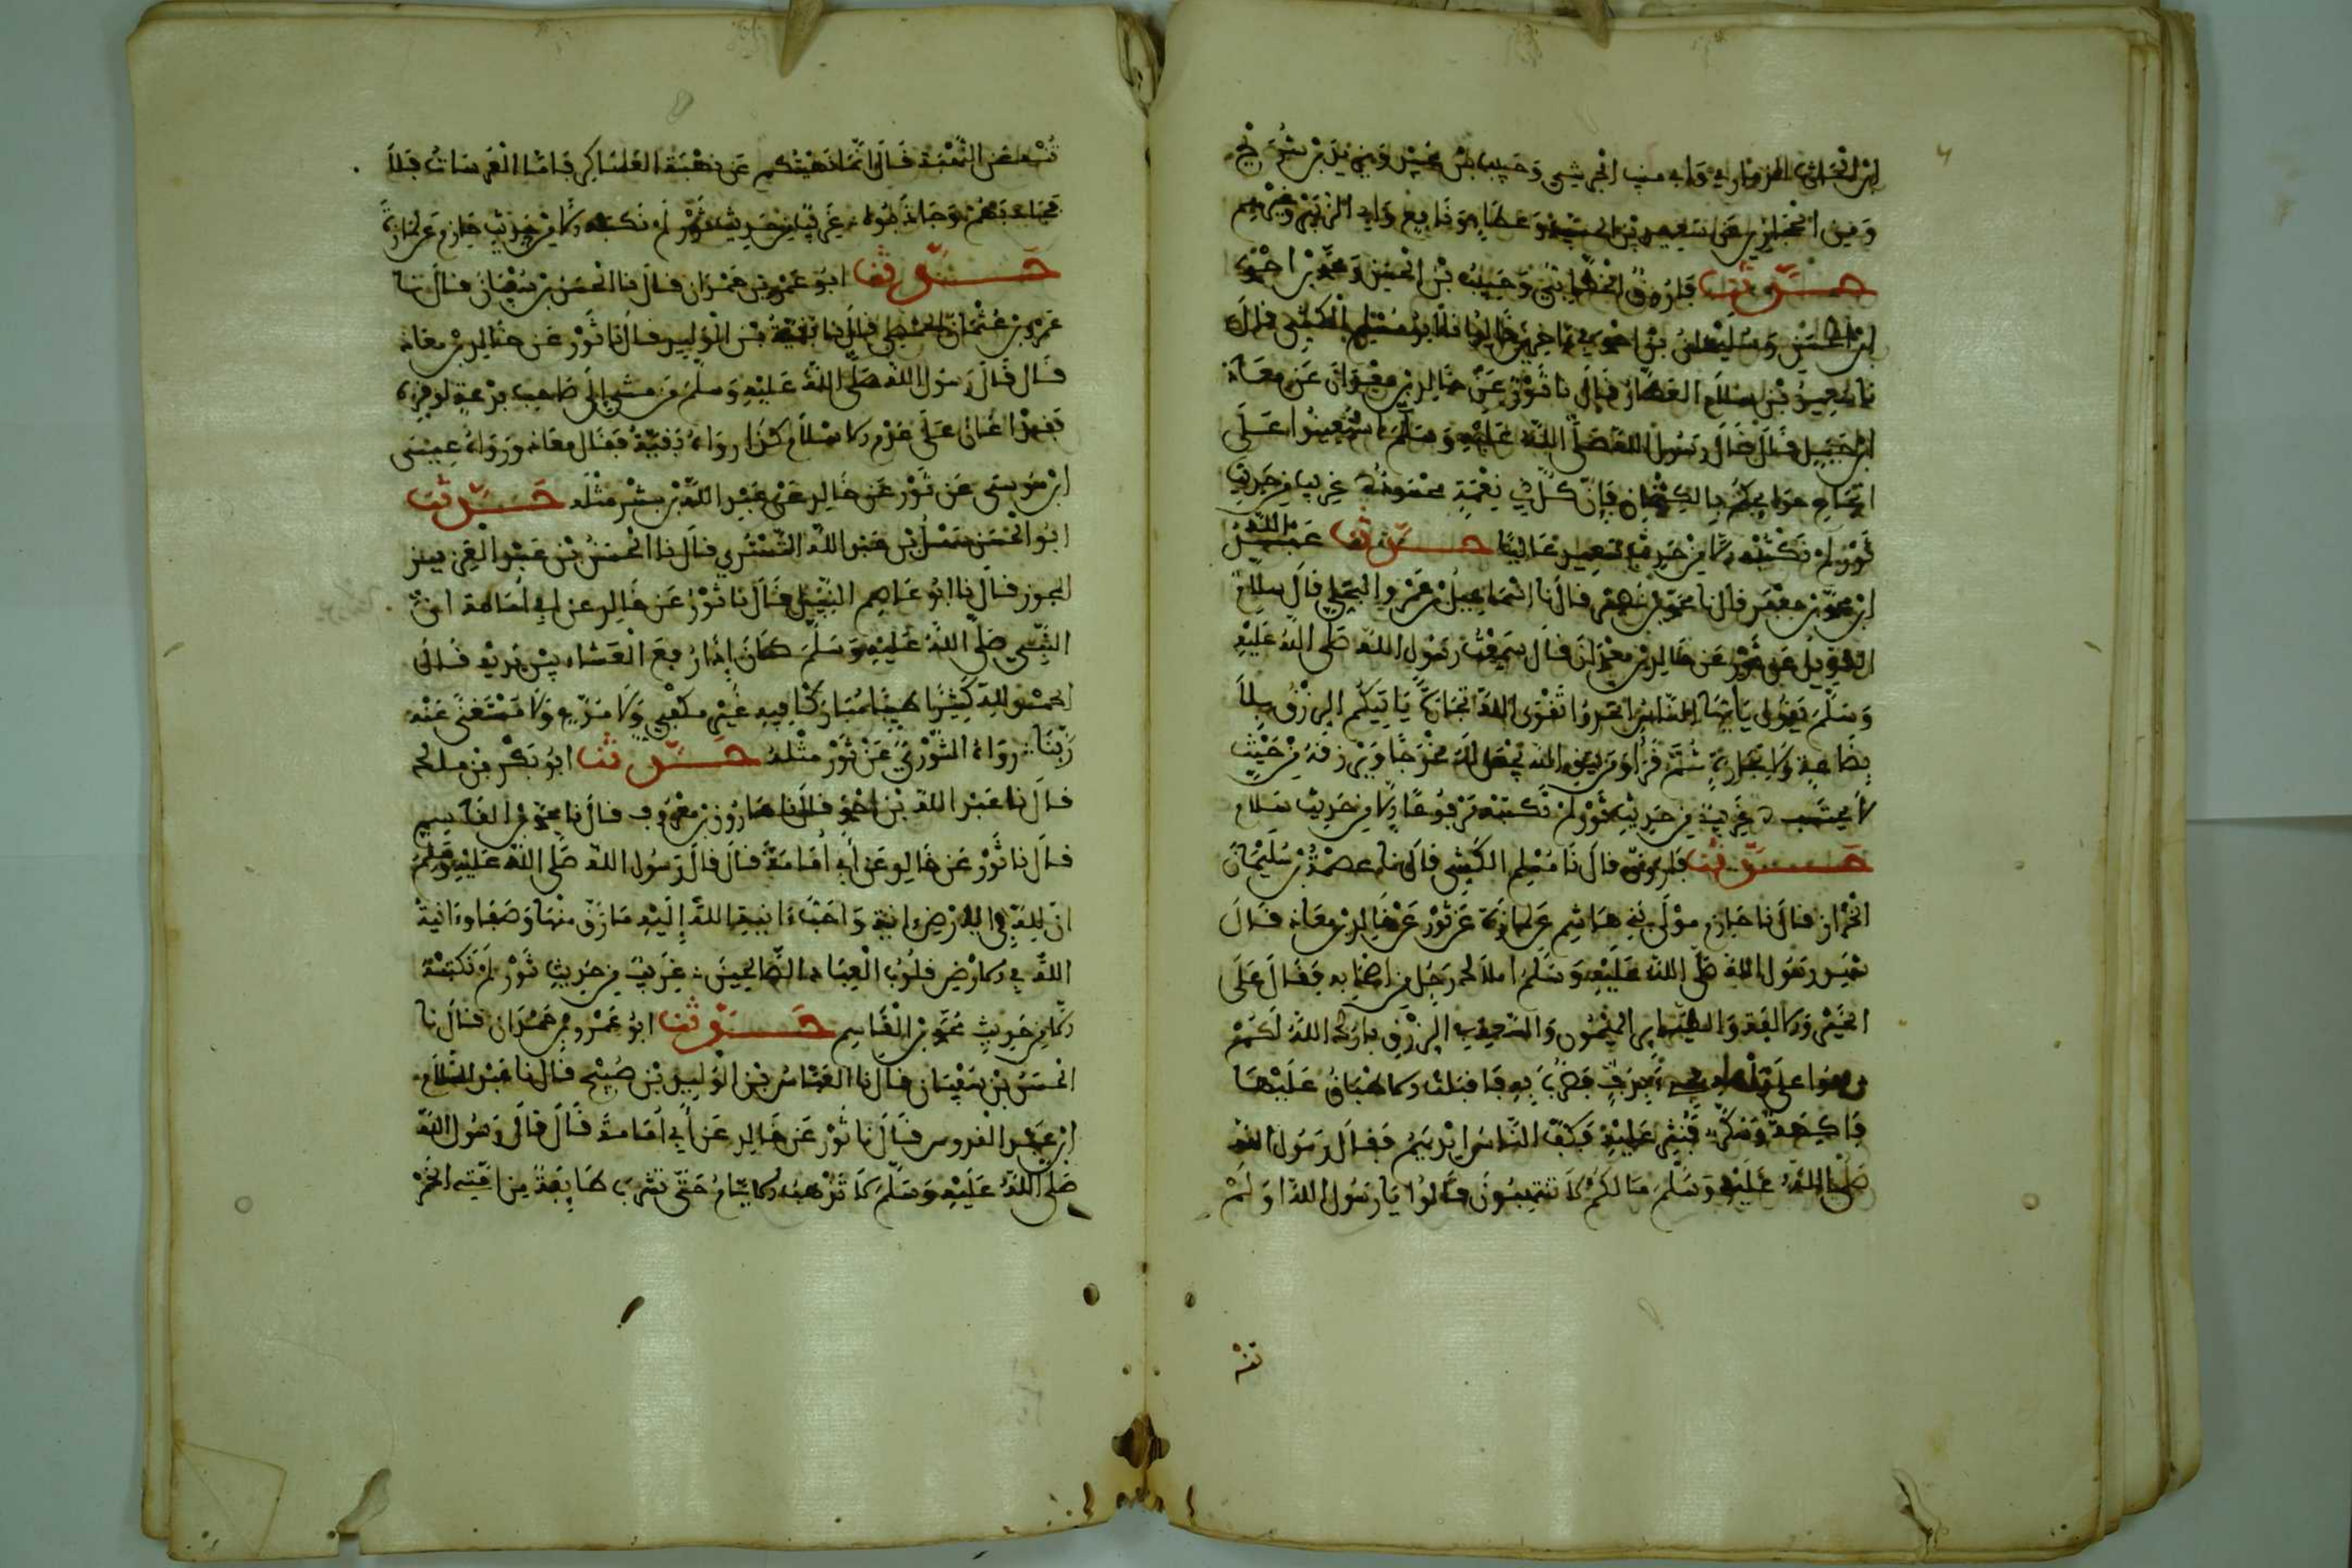 ابن الحارث الذماري وأبي منيب الجرشي وحبيب بن عبيد ويزيد بن شريح
ومن الحجازيين عن سعيد بن المسيب وعطاء ونافع وأبي الزبير وغيرهم
حدثنا فاروق الخطابي وحبيب بن الحسن ومحمد بن أحمد
ابن الحسن وسليمان بن أحمد في آخرين قالوا نا أبو مسلم الكشي قال
نا سعيد بن سلام العطار قال نا ثور عن خالد بن معدان عن معاذ
ابن جبل قال قال رسول الله صلى الله عليه وسلم استعينوا على
إنجاح حوائجكم بالكتمان فإن كل ذي نعمة محسود غريب من حديث
ثور لم نكتبه إلا من حديث سعيد عاليا حدثنا عبد الله
ابن محمد بن جعفر قال نا محمد بن نا إسماعيل بن عمرو البجلي قال سلام
الطويل عن ثور عن خالد بن معدان قال سمعت رسول الله صلى الله عليه
وسلم يقول يا أيها الناس اتخذوا تقوى الله تجارة يأتيكم الرزق بلا
بضاعة ولا تجارة ثم قرأ ومن يتق الله يجعل له مخرجا ويرزقه من حيث
لا يحتسب غريب من حديث ثور لم نكتبه مرفوعا إلا من حديث سلام
حدثنا فاروق قال نا مسلم الكشي قال نا عصمة بن سليمان
الخزاز قال نا حازم مولى بني هاشم عن لمازة عن ثور عن خالد بن معاذ قال
شهد رسول الله صلى الله عليه وسلم املاك رجل من أصحابه فقال على
الخير والألفة والطائر الميمون والسعة في الرزق بارك الله لكم
دففوا على رأسه فجيء بدف فضرب به فأقبلت الأطباق عليها
فاكهة وسكر فنثر عليه فكف الناس أيديهم فقال رسول الله
صلى الله عليه وسلم ما لكم لا تنتهبون قالوا يا رسول الله أو لم
تنه
تنه عن النهبة قال إنما نهيتكم عن نهبة العساكر فأما العرسات فلا
فجاذبهم وجاذبوه غريب من حديث ثور لم نكتبه إلا من حديث حازم عن لمازة
حدثنا أبو عمرو بن حمدان قال نا الحسن بن سفيان قال نا
عمرو بن عثمان الحمصي قال نا بقية بن الوليد قال نا ثور عن خالد بن معاذ
قال قال رسول الله صلى الله عليه وسلم من مشى إلى صاحب بدعة ليوقره
فقد أعان على هدم الإسلام كذا رواه بقية فقال معاذ ورواه عيسى
ابن موسى عن ثور عن خالد عن عبد الله بن بشر مثله حدثنا
أبو الحسن سهل بن عبد الله التستري قال نا الحسن بن عبد العزيز
المجوز قال نا أبو عاصم النبيل قال نا ثور عن خالد عن أبي أمامة أن
النبي صلى الله عليه وسلم كان إذا رفع العشاء بين يديه قال
الحمد لله كثيرا طيبا مباركا فيه غير مكفي ولا مودع ولا مستغنى عنه
ربنا رواه الثوري عن ثور مثله حدثنا أبو بكر بن ملك
قال نا عبد الله بن أحمد قال نا هارون بن معروف قال نا محمد بن القاسم
قال نا ثور عن خالد عن أبي أمامة قال قال رسول الله صلى الله عليه وسلم
إن لله في الأرض آنية وأحب آنية الله إليه ما رق منها وصفا وآنية
الله في الأرض قلوب العباد الصالحين غريب من حديث ثور لم نكتبه
إلا من حديث محمد بن القاسم حدثنا أبو عمرو بن حمدان قال نا
الحسن بن سفيان قال نا العباس بن الوليد بن صبح قال نا عبد السلام
ابن عبد القدوس قال نا ثور عن خالد عن أبي أمامة قال قال رسول الله
صلى الله عليه وسلم لا تذهب الأيام حتى تشرب طائفة من أمتي الخمر